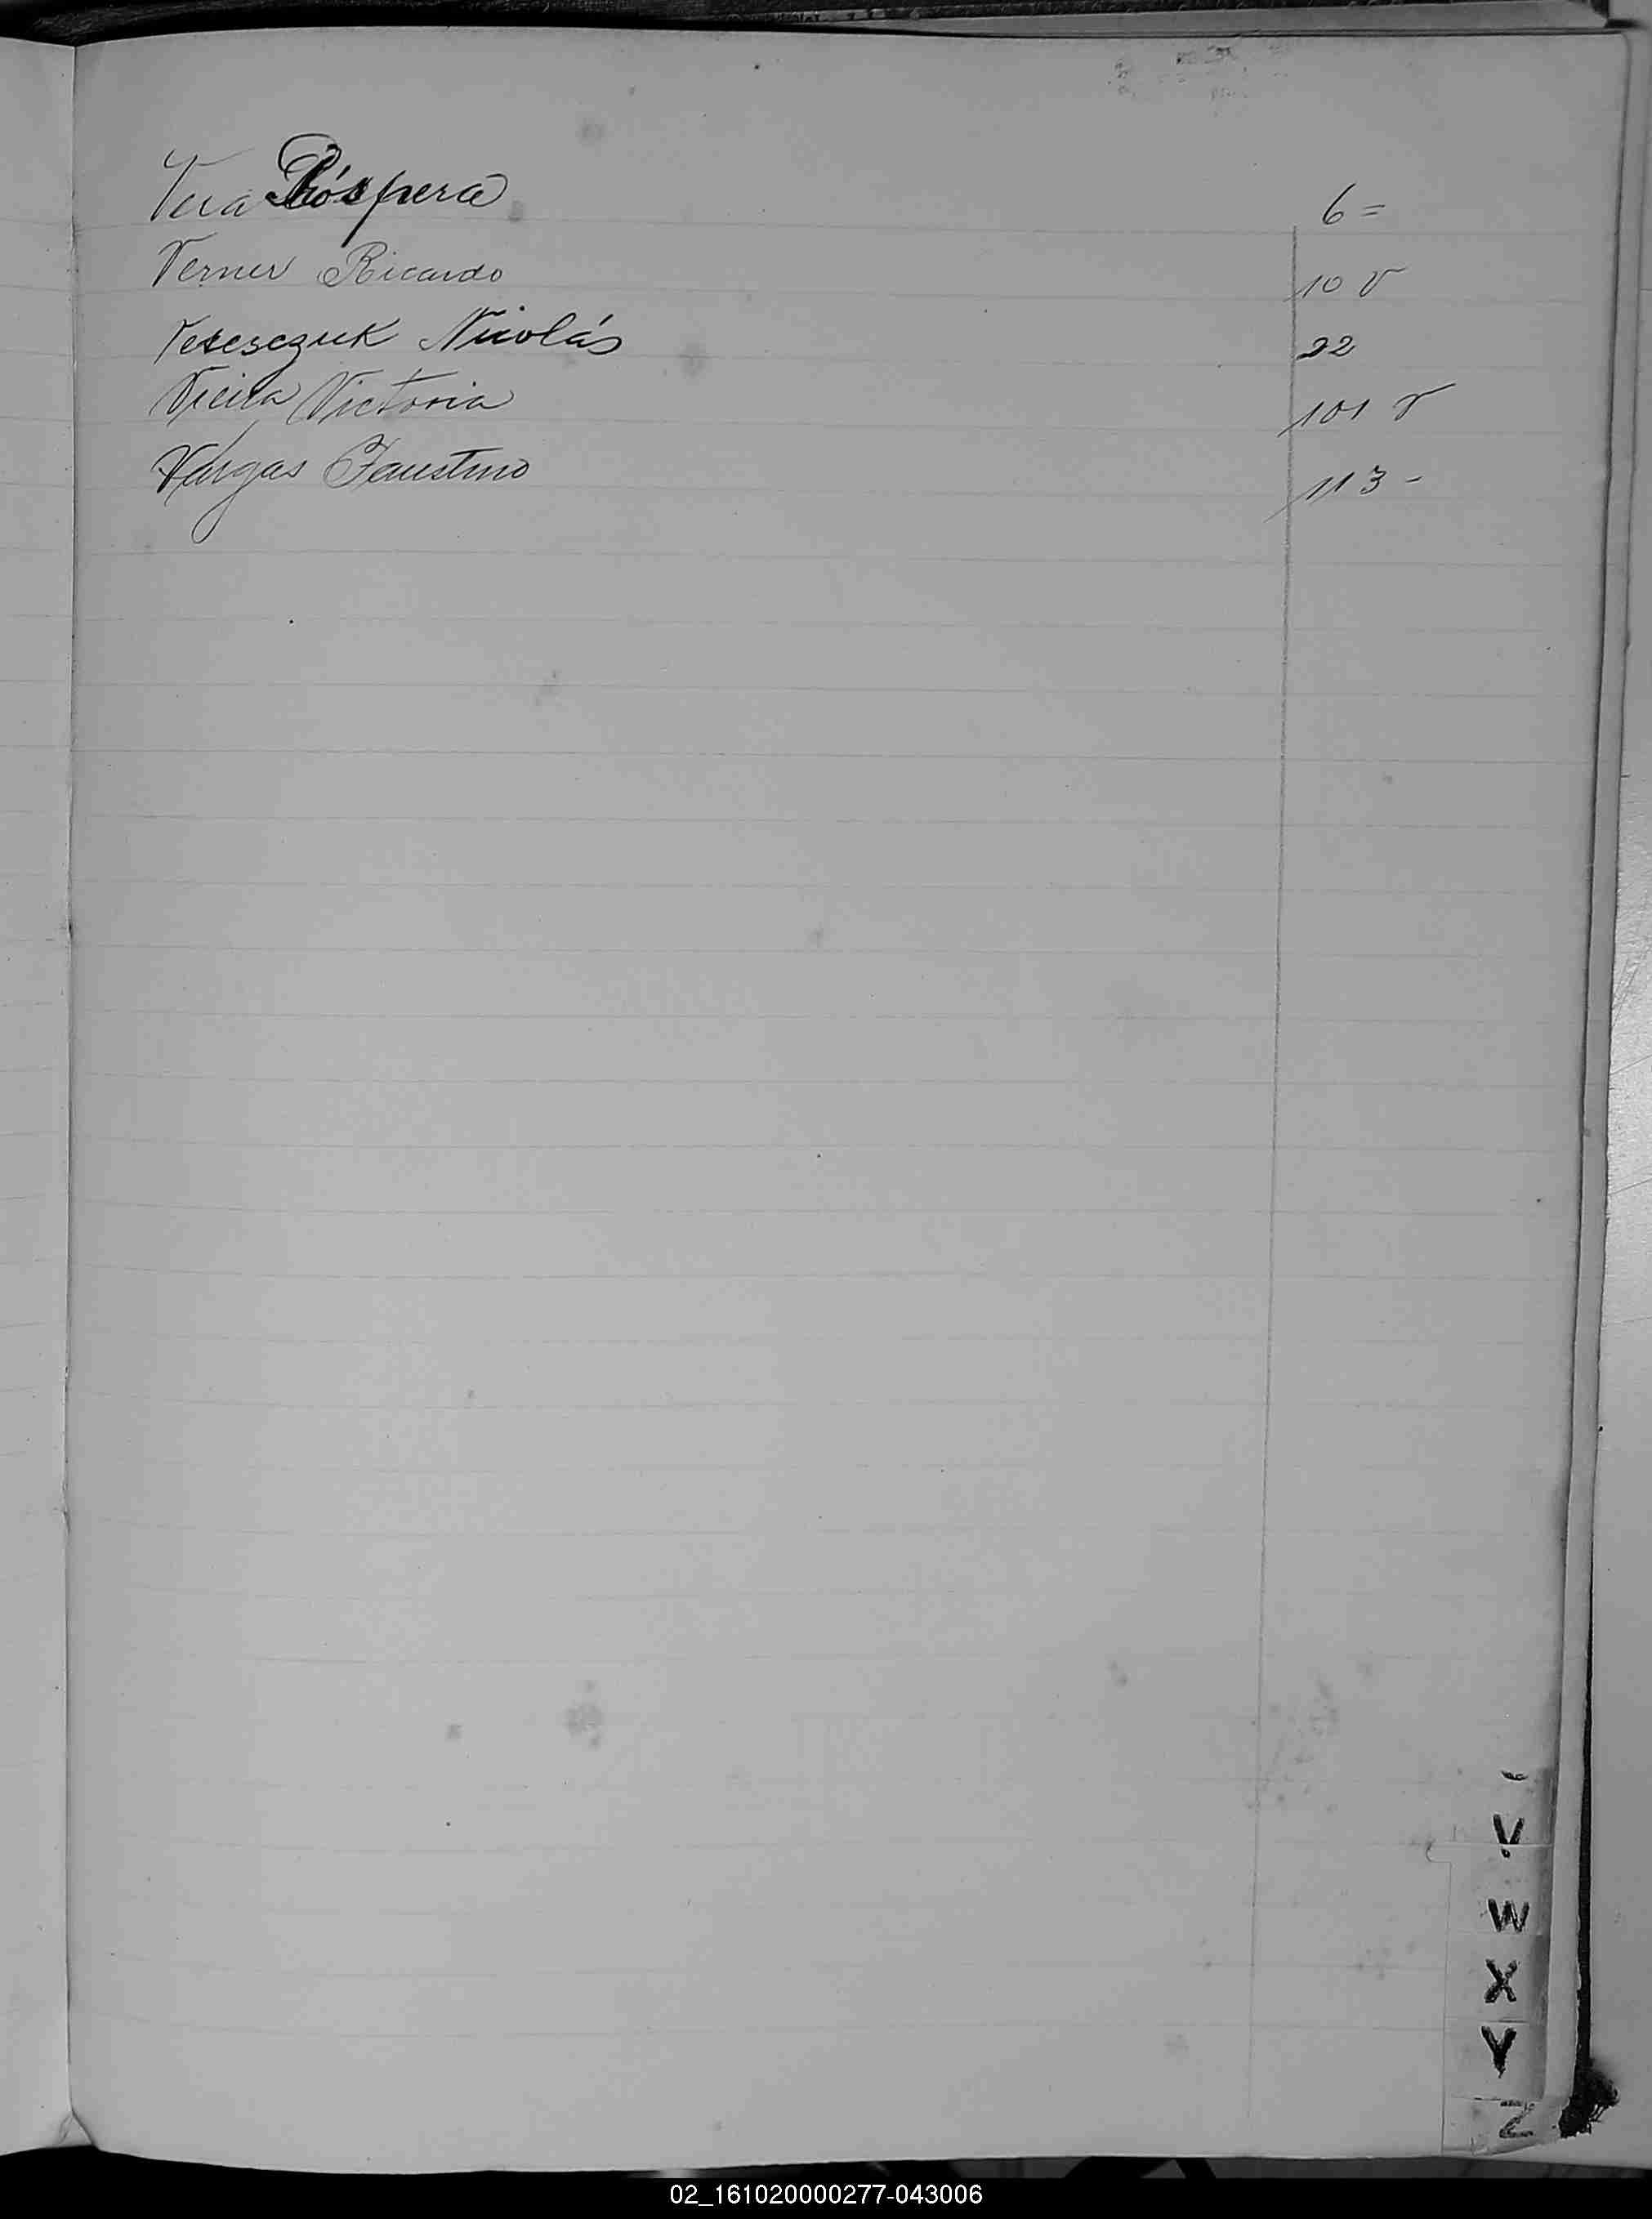 Vera Próspera 6 =
Verner Ricardo 10 v
Nicolás 22
Vieira Victoria 101 v
Vargas Faustino 113 -
V
W
X
Y
Z
02_161020000277-043006